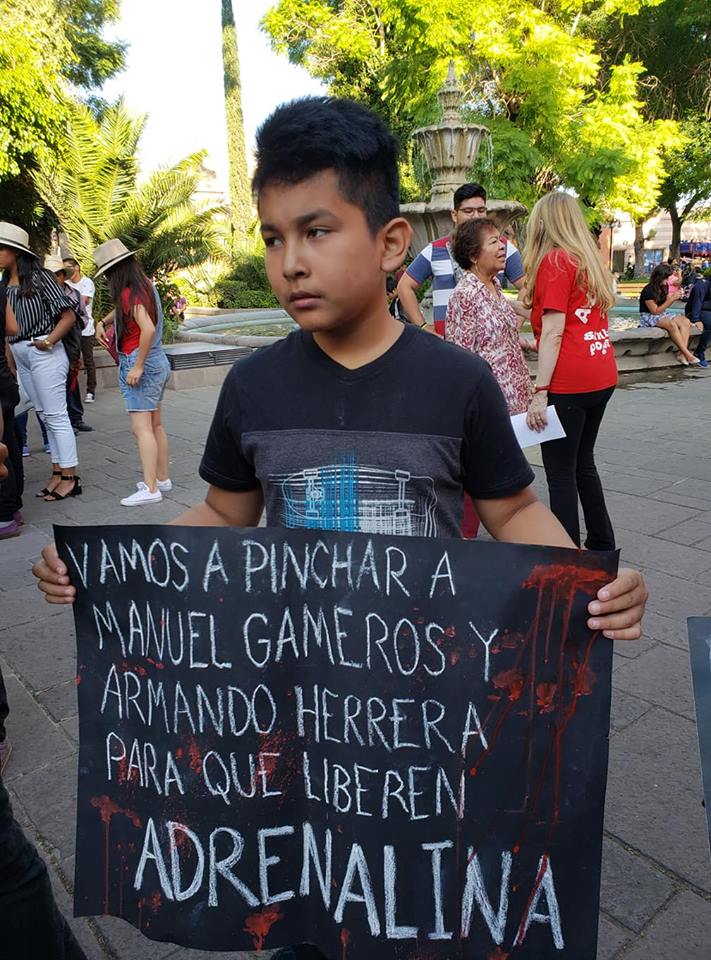 VAMOS A PINCHAR A
MANUEL GAMEROS Y
ARMANDO HERRERA
PARA QUE LIBEREN
ADRENALINA